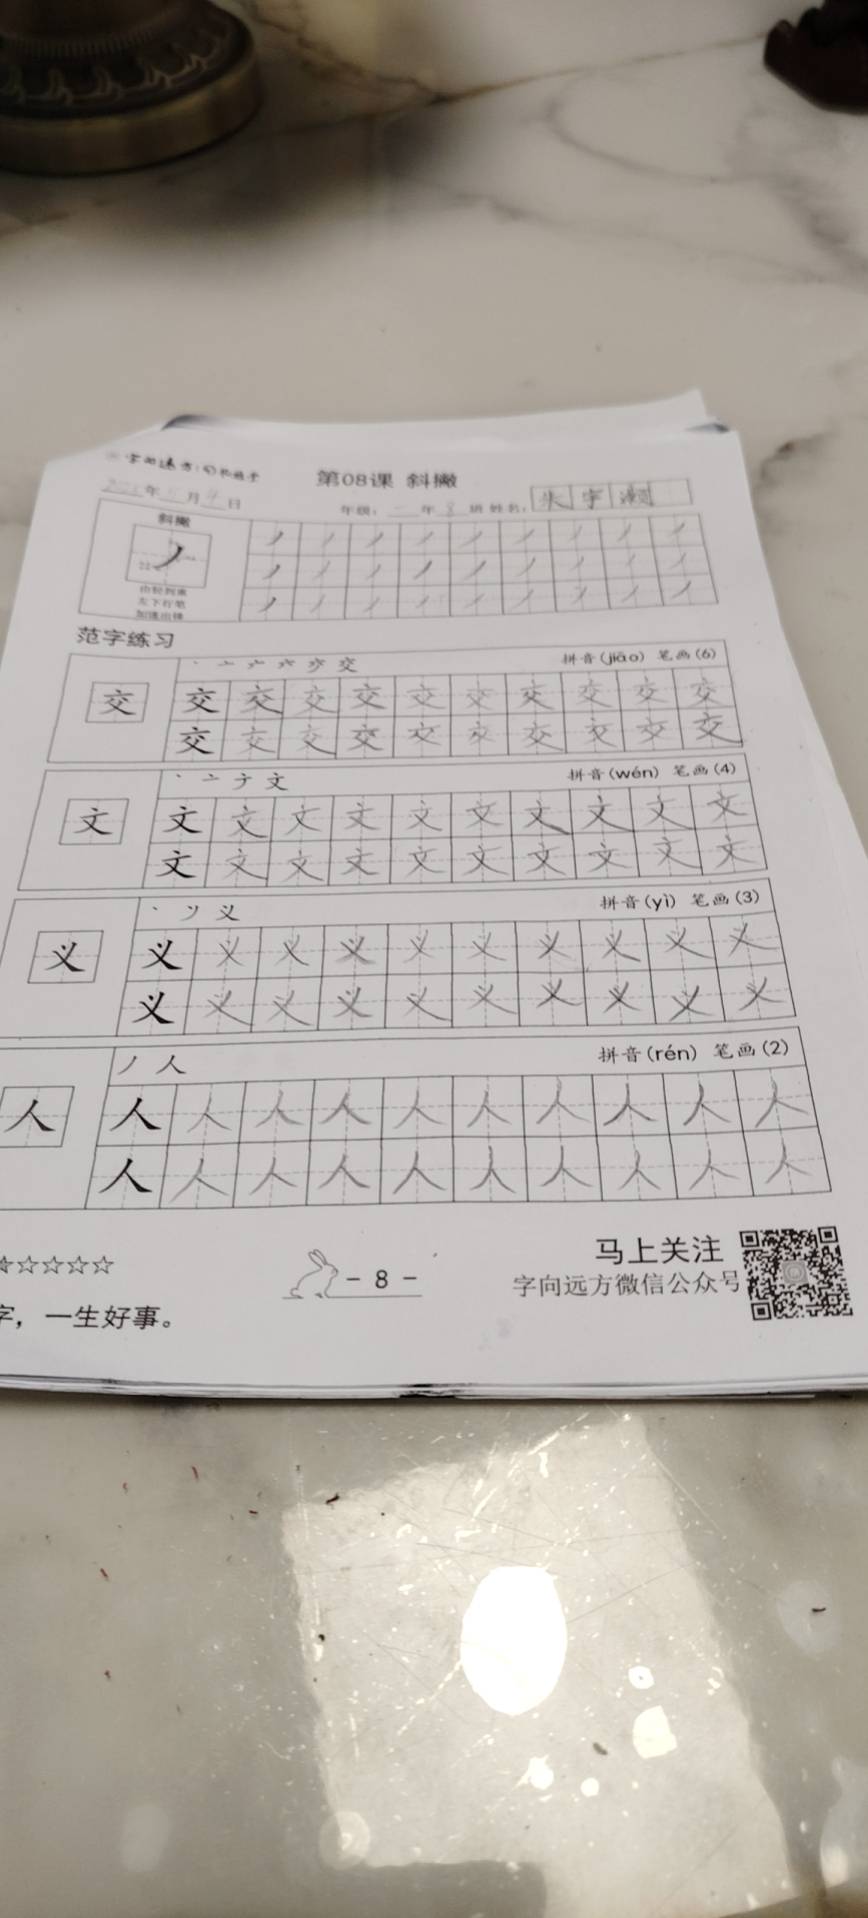 第08课 斜撇
年 月 日
年级: 一 年 8 班 姓名: 朱 宇 灏
斜撇
由轻到重
左下行笔
范字练习
丶 亠 六 交 拼音(jiāo) 笔画(6)
交 交 交 交 交 交 交 交 交 交 交
交 交 交 交 交 交 交 交 交 交
丶 亠 文 拼音(wén) 笔画(4)
文 文 文 文 文 文 文 文 文 文 文
文 文 文 文 文 文 文 文 文 文
丶 义 拼音(yì) 笔画(3)
义 义 义 义 义 义 义 义 义 义 义
义 义 义 义 义 义 义 义 义 义
丿 人 拼音(rén) 笔画(2)
人 人 人 人 人 人 人 人 人 人 人
人 人 人 人 人 人 人 人 人 人
☆☆☆☆☆
- 8 -
马上关注
字向远方微信公众号
字，一生好事。